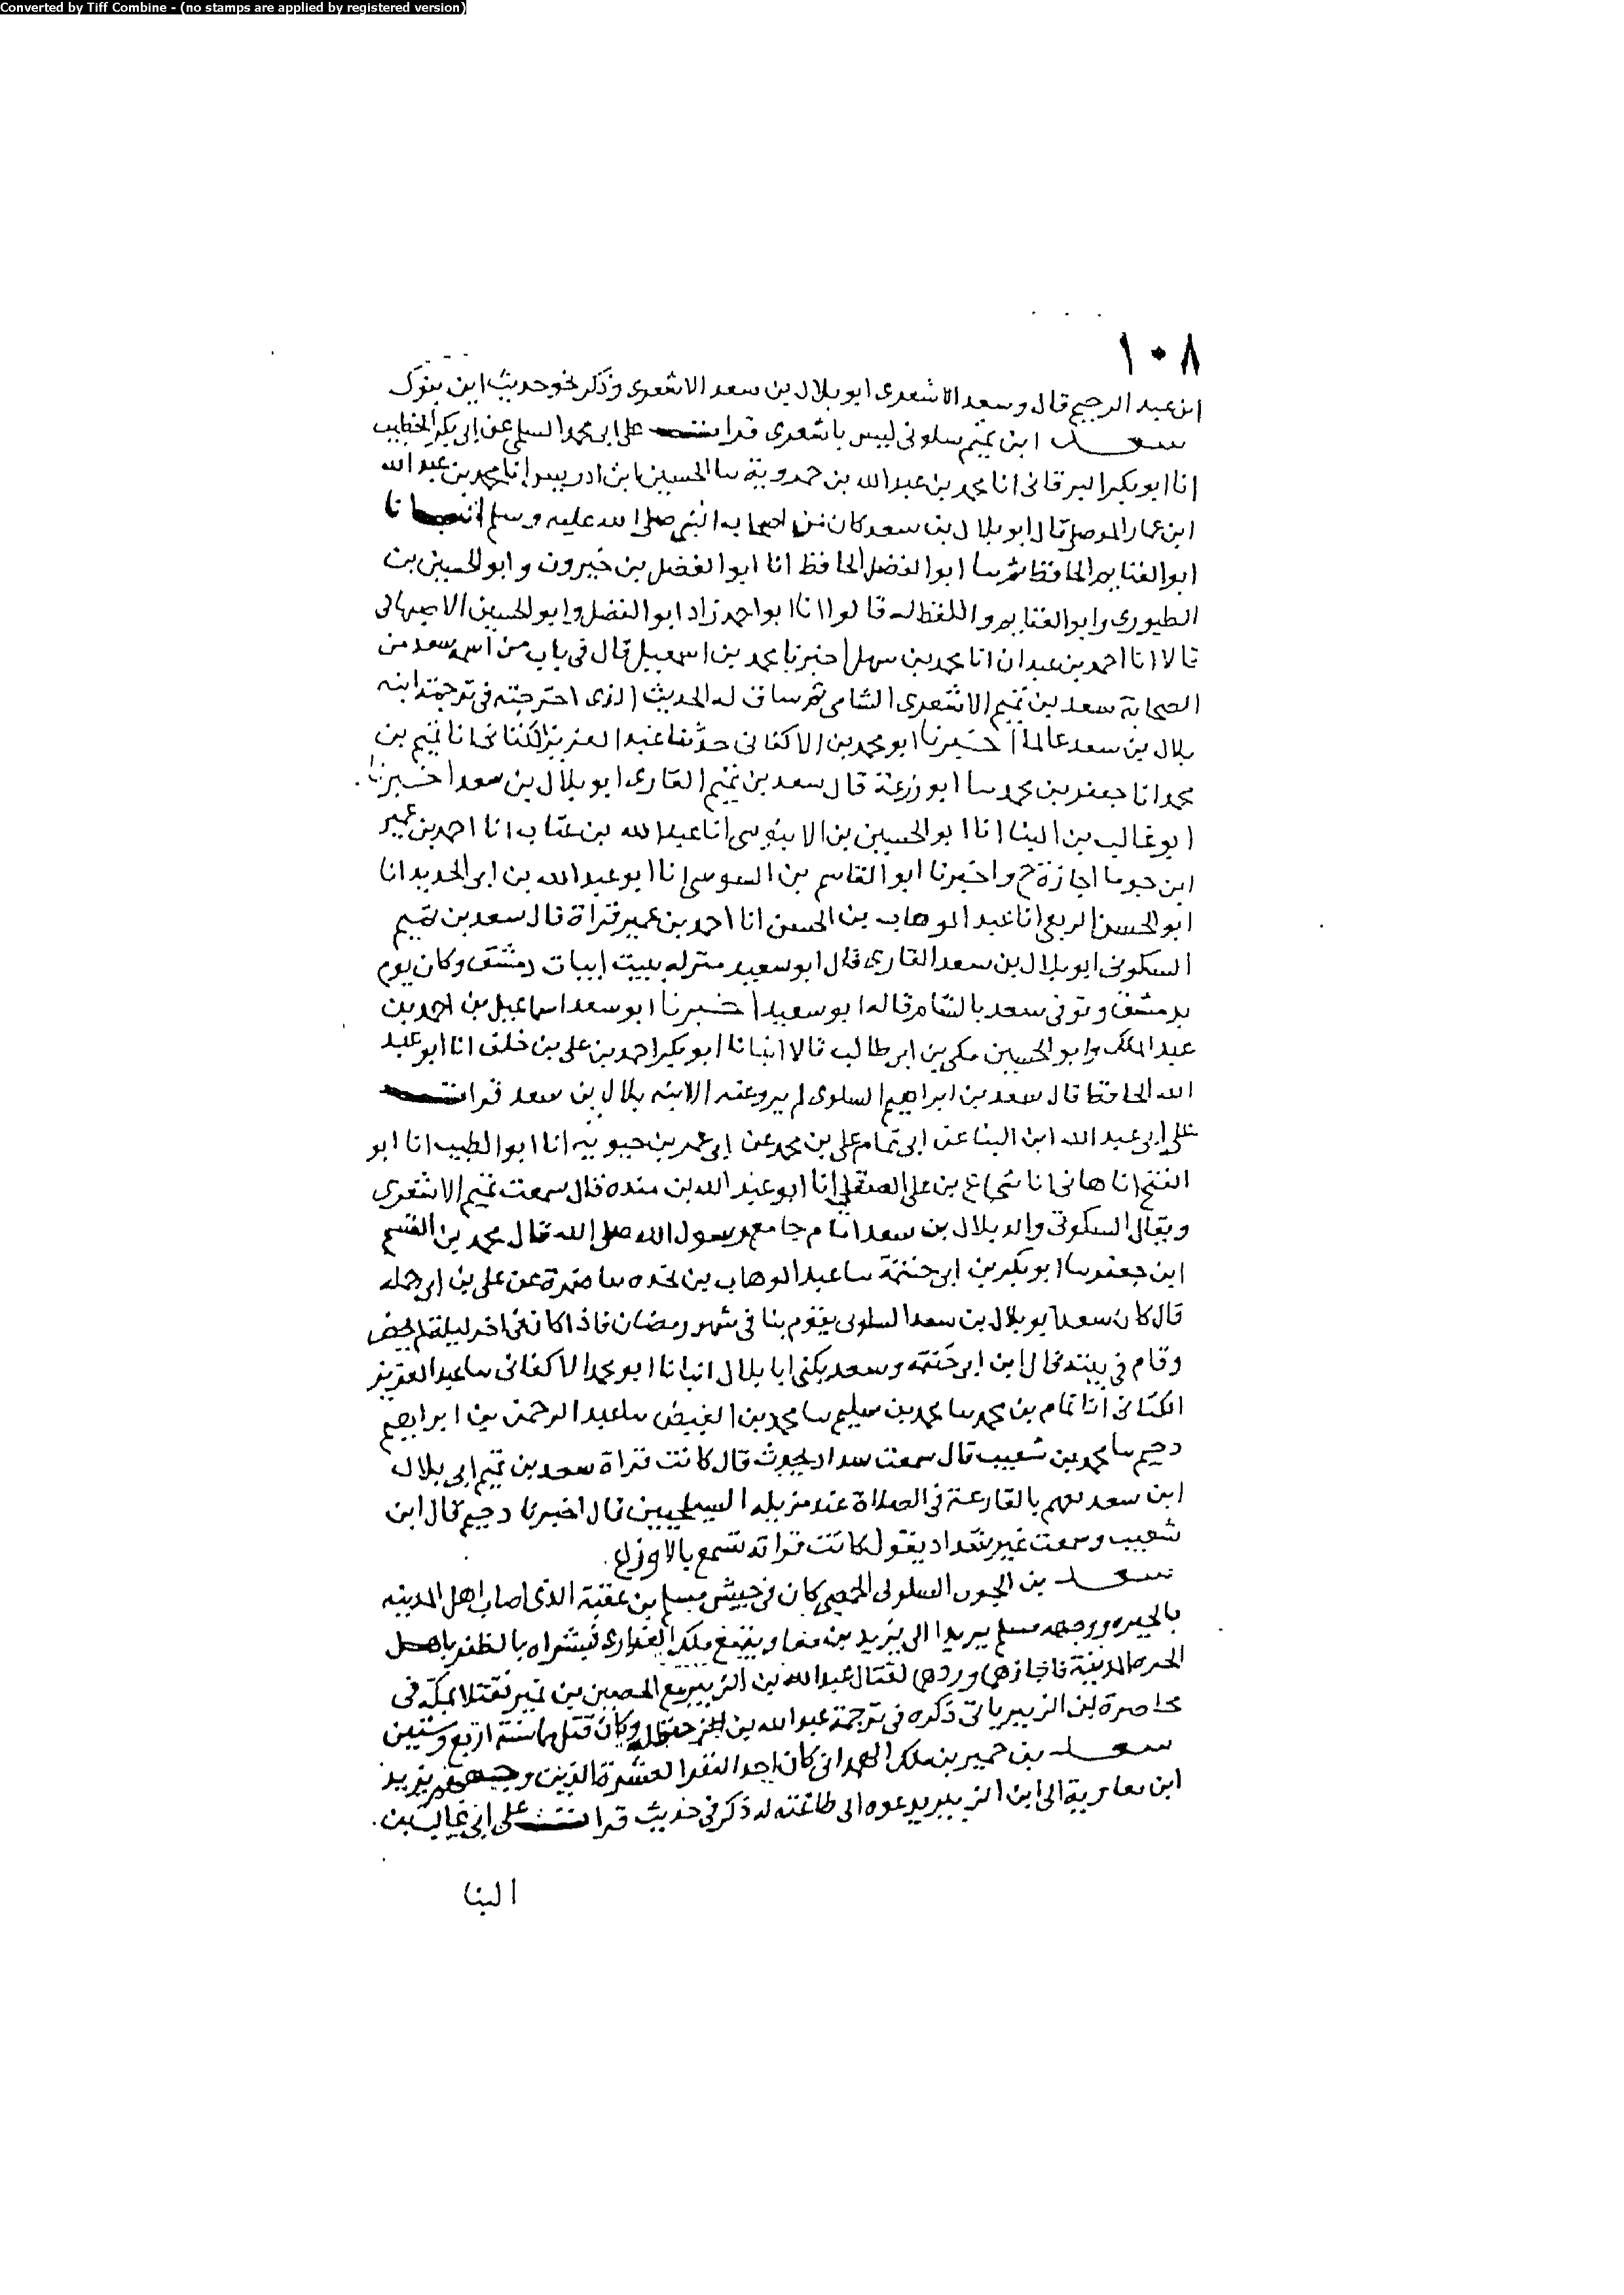 Converted by Tiff Combine - (no stamps are applied by registered version)
١٠٨
ابن عبد الرحيم قال وسعد الاشعري ابو بلال بن سعد الاشعري وذكر نحو حديث ابن
سعد ابن تميم سلوني ليس باشعري قرات على ابي محمد السلمي عن ابي بكر الخطيب
انا ابو بكر البرقاني انا محمد بن عبد الله بن حمدوية سا الحسين ابن ادريس انا محمد بن عبد الله
ابن عمار الموصلي قال ابو بلال بن سعد كان من اصحاب النبي صلى الله عليه وسلم انبانا
ابو الغنايم الحافظ ثم سا ابو الفضل الحافظ انا ابو الفضل بن خيرون وابو الحسين بن
الطيوري وابو الغنايم واللفظ له قالوا انا ابو احمد زاد ابو الفضل وابو الحسين الاصبهاني
قالا انا احمد بن عبدان انا محمد بن سهل اخبرنا محمد بن اسمعيل قال في باب من اسمه سعد من
الصحابة سعد بن تميم الاشعري الشامي ثم ساق له الحديث الذي اخرجته في ترجمة ابنه
بلال بن سعد عاليا اخبرنا ابو محمد بن الاكفاني حدثنا عبد العزيز الكناني انا تميم بن
محمد انا جعفر بن محمد سا ابو زرعة قال سعد بن تميم القاري ابو بلال بن سعد اخبرنا
ابو غالب بن البنا انا ابو الحسين بن الابنوسي انا عبد الله بن عتاب انا احمد بن عمير
ابن جوصا اجازة ح واخبرنا ابو القاسم بن السوسي انا ابو عبد الله بن ابي الحديد انا
ابو الحسن الربعي انا عبد الوهاب بن الحسن انا احمد بن عمير قراة قال سعد بن تميم
السكوني ابو بلال بن سعد القاري قال ابو سعيد منزله ببيت ابيات دمشق وكان يوم
بدمشق وتوفي سعد بالشام قاله ابو سعيد اخبرنا ابو سعد اسماعيل بن احمد بن
عبد الملك وابو الحسين مكي بن ابي طالب قالا انبانا ابو بكر احمد بن علي بن خلف انا ابو عبد
الله الحافظ قال سعد بن ابراهيم السلوي لم يرو عنه الا ابنه بلال بن سعد قرات
على ابي عبد الله ابن البنا عن ابي تمام علي بن محمد عن ابي عمر بن حيوية انا ابو الطيب انا ابو
الفتح انا هاني انا شجاع بن علي الصقلي انا ابو عبد الله بن منده قال سمعت تميم الاشعري
ويقال السكوني والد بلال بن سعد امام جامع رسول الله صلى الله قال محمد بن القسم
ابن جعفر سا ابو بكر بن ابي خثمة سا عبد الوهاب بن نجده سا ضمرة عن علي بن ابي حمله
قال كان سعد ابو بلال بن سعد السلوي يقوم بنا في شهر رمضان فاذا كان في اخر ليلة لم يحض
وقام في بيته قال ابن ابي خثمة وسعد يكنى ابا بلال انبانا ابو محمد الاكفاني سا عبد العزيز
الكتاني انا تمام بن محمد سا محمد بن سليم سا محمد بن الفيض سا عبد الرحمن بن ابراهيم
دحيم سا محمد بن شعيب قال سمعت يحدث قال كانت قراة سعد بن تميم ابي بلال
ابن سعد بالقارعة في الصلاة عند مزبله قال اخبرنا دحيم قال ابن
شعيب وسمعت غير شداد يقول كانت قراته تسمع بالاوزاع
سعد بن الجون السلولي الحمصي كان في جيش مسلم بن عقبة الذي اصاب اهل المدينه
بالحيره ووجهه مسلم بريدا الى يزيد بن معاوية مع ملك الفزاري فبشراه بالظفر باهل
الحرة المدينة فاجازهما وردهما لقتال عبد الله بن الزبير مع الحصين بن نمير فقتلا بمكة في
محاصرة بن الزبير ياتي ذكره في ترجمة عبد الله بن حنظلة وكان قتلهما سنة اربع وستين
سعد بن حمير بن ملك الهمداني كان احد النفر العشرة الذين وجههم يزيد
ابن معاوية الى ابن الزبير يدعوه الى طاعته له ذكر في حديث قرات على ابي غالب بن
البنا